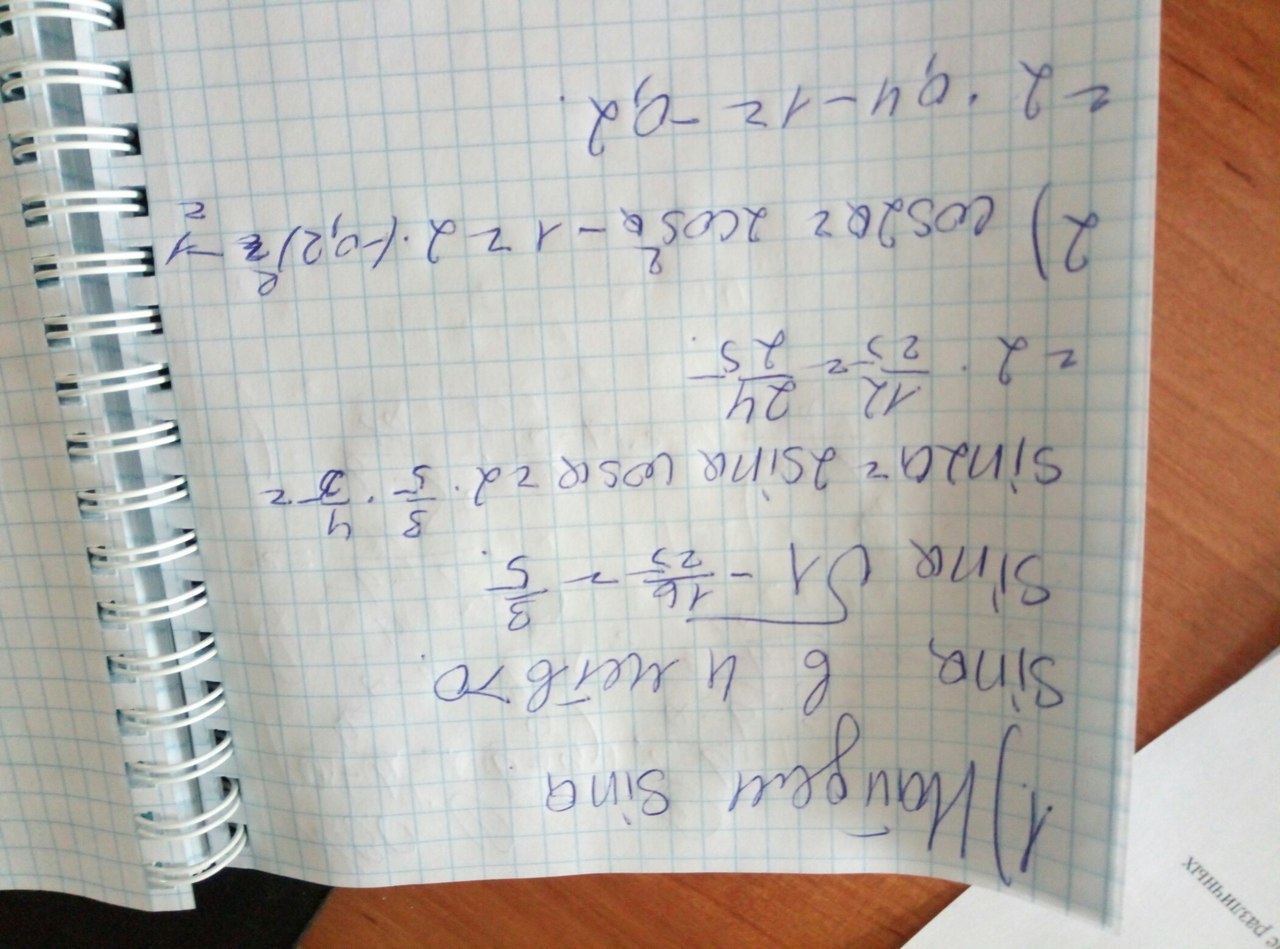 1) Найдем sina
sina в 4 четв >0.
sina √1 - 16/25 = 3/5.
sin2a = 2sina cosa = 2 · 3/5 · 4/5 =
= 2 · 12/25 = 24/25.
2) cos2a = 2cos²a - 1 = 2 · (-0,2)² - 1 =
= 2 · 0,4 - 1 = -0,2.
е различных